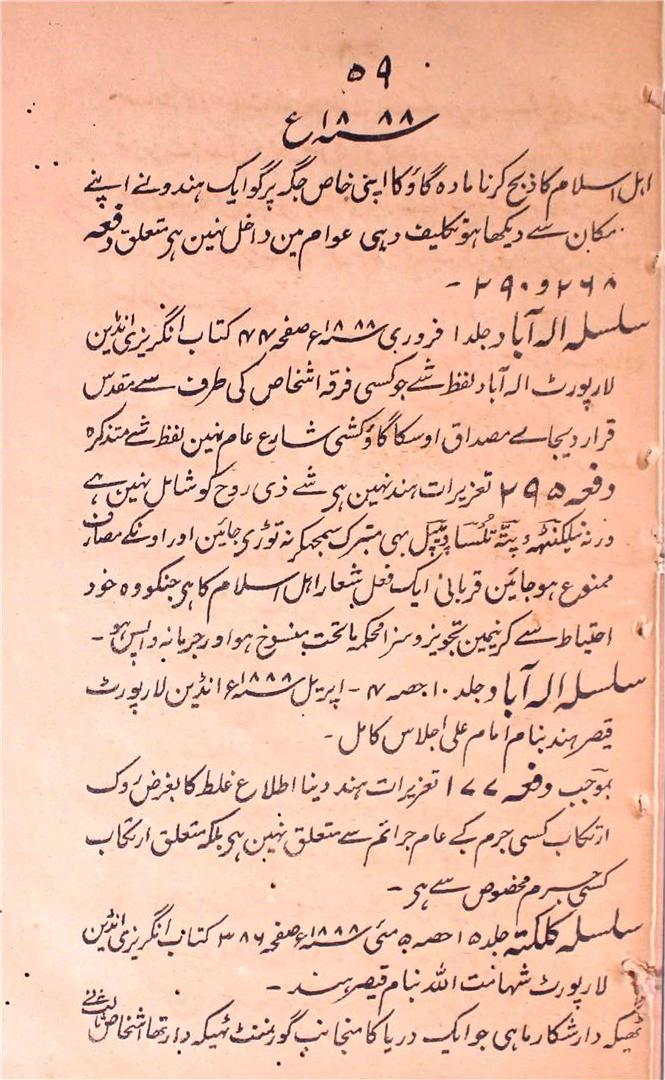 ۵۹
سنہ ۱۸۸۸ ع
اہل اسلام کا ذبح کرنا مادہ گاؤ کا اپنی خاص جگہ پر گو ایک ہندو نے اپنے
مکان سے دیکھا ہو تکلیف دہی عوام مین داخل نہین ہی متعلق دفعہ
۲۶۸ و ۲۹۰ -
سلسلہ الہ آباد جلد ۱ فروری سنہ ۱۸۸۸ع صفحہ ۴۴ کتاب انگریزی انڈین
لا رپورٹ الہ آباد لفظ شے جو کسی فرقہ اشخاص کی طرف سے مقدس
قرار دیجاے مصداق اوسکا گاؤ کشی شارع عام نہین لفظ شے متذکرہ
دفعہ ۲۹۵ تعزیرات ہند نہین ہی شے ذی روح کو شامل نہین ہے
ورنہ نیلکنٹھہ و پتہ تلسا و پیپل بھی متبرک سمجھکر نہ توڑی جائین اور اونکے مصارف
ممنوع ہو جائین قربانی ایک فعل شعار اہل اسلام کا ہی جنکو وہ خود
احتیاط سے کرینمین تجویز و سزا محکمہ ماتحت منسوخ ہو اور جرمانہ واپس ہو -
سلسلہ الہ آباد جلد ۱۰ حصہ ۴ - اپریل سنہ ۱۸۸۸ع انڈین لا رپورٹ
قیصر ہند بنام امام علی اجلاس کامل -
بموجب دفعہ ۱۷۷ تعزیرات ہند دینا اطلاع غلط کا بغرض روک
ارتکاب کسی جرم کے عام جرائم سے متعلق نہین ہی بلکہ متعلق ارتکاب
کسی جرم مخصوص سے ہی -
سلسلہ کلکتہ جلد ۱۵ حصہ ۵ مئی سنہ ۱۸۸۸ع صفحہ ۳۸۶ کتاب انگریزی انڈین
لا رپورٹ شہانت اللہ بنام قیصر ہند -
ٹھیکہ دار شکار ماہی جو ایک دریا کا منجانب گورنمنٹ ٹھیکہ دار تھا اشخاص